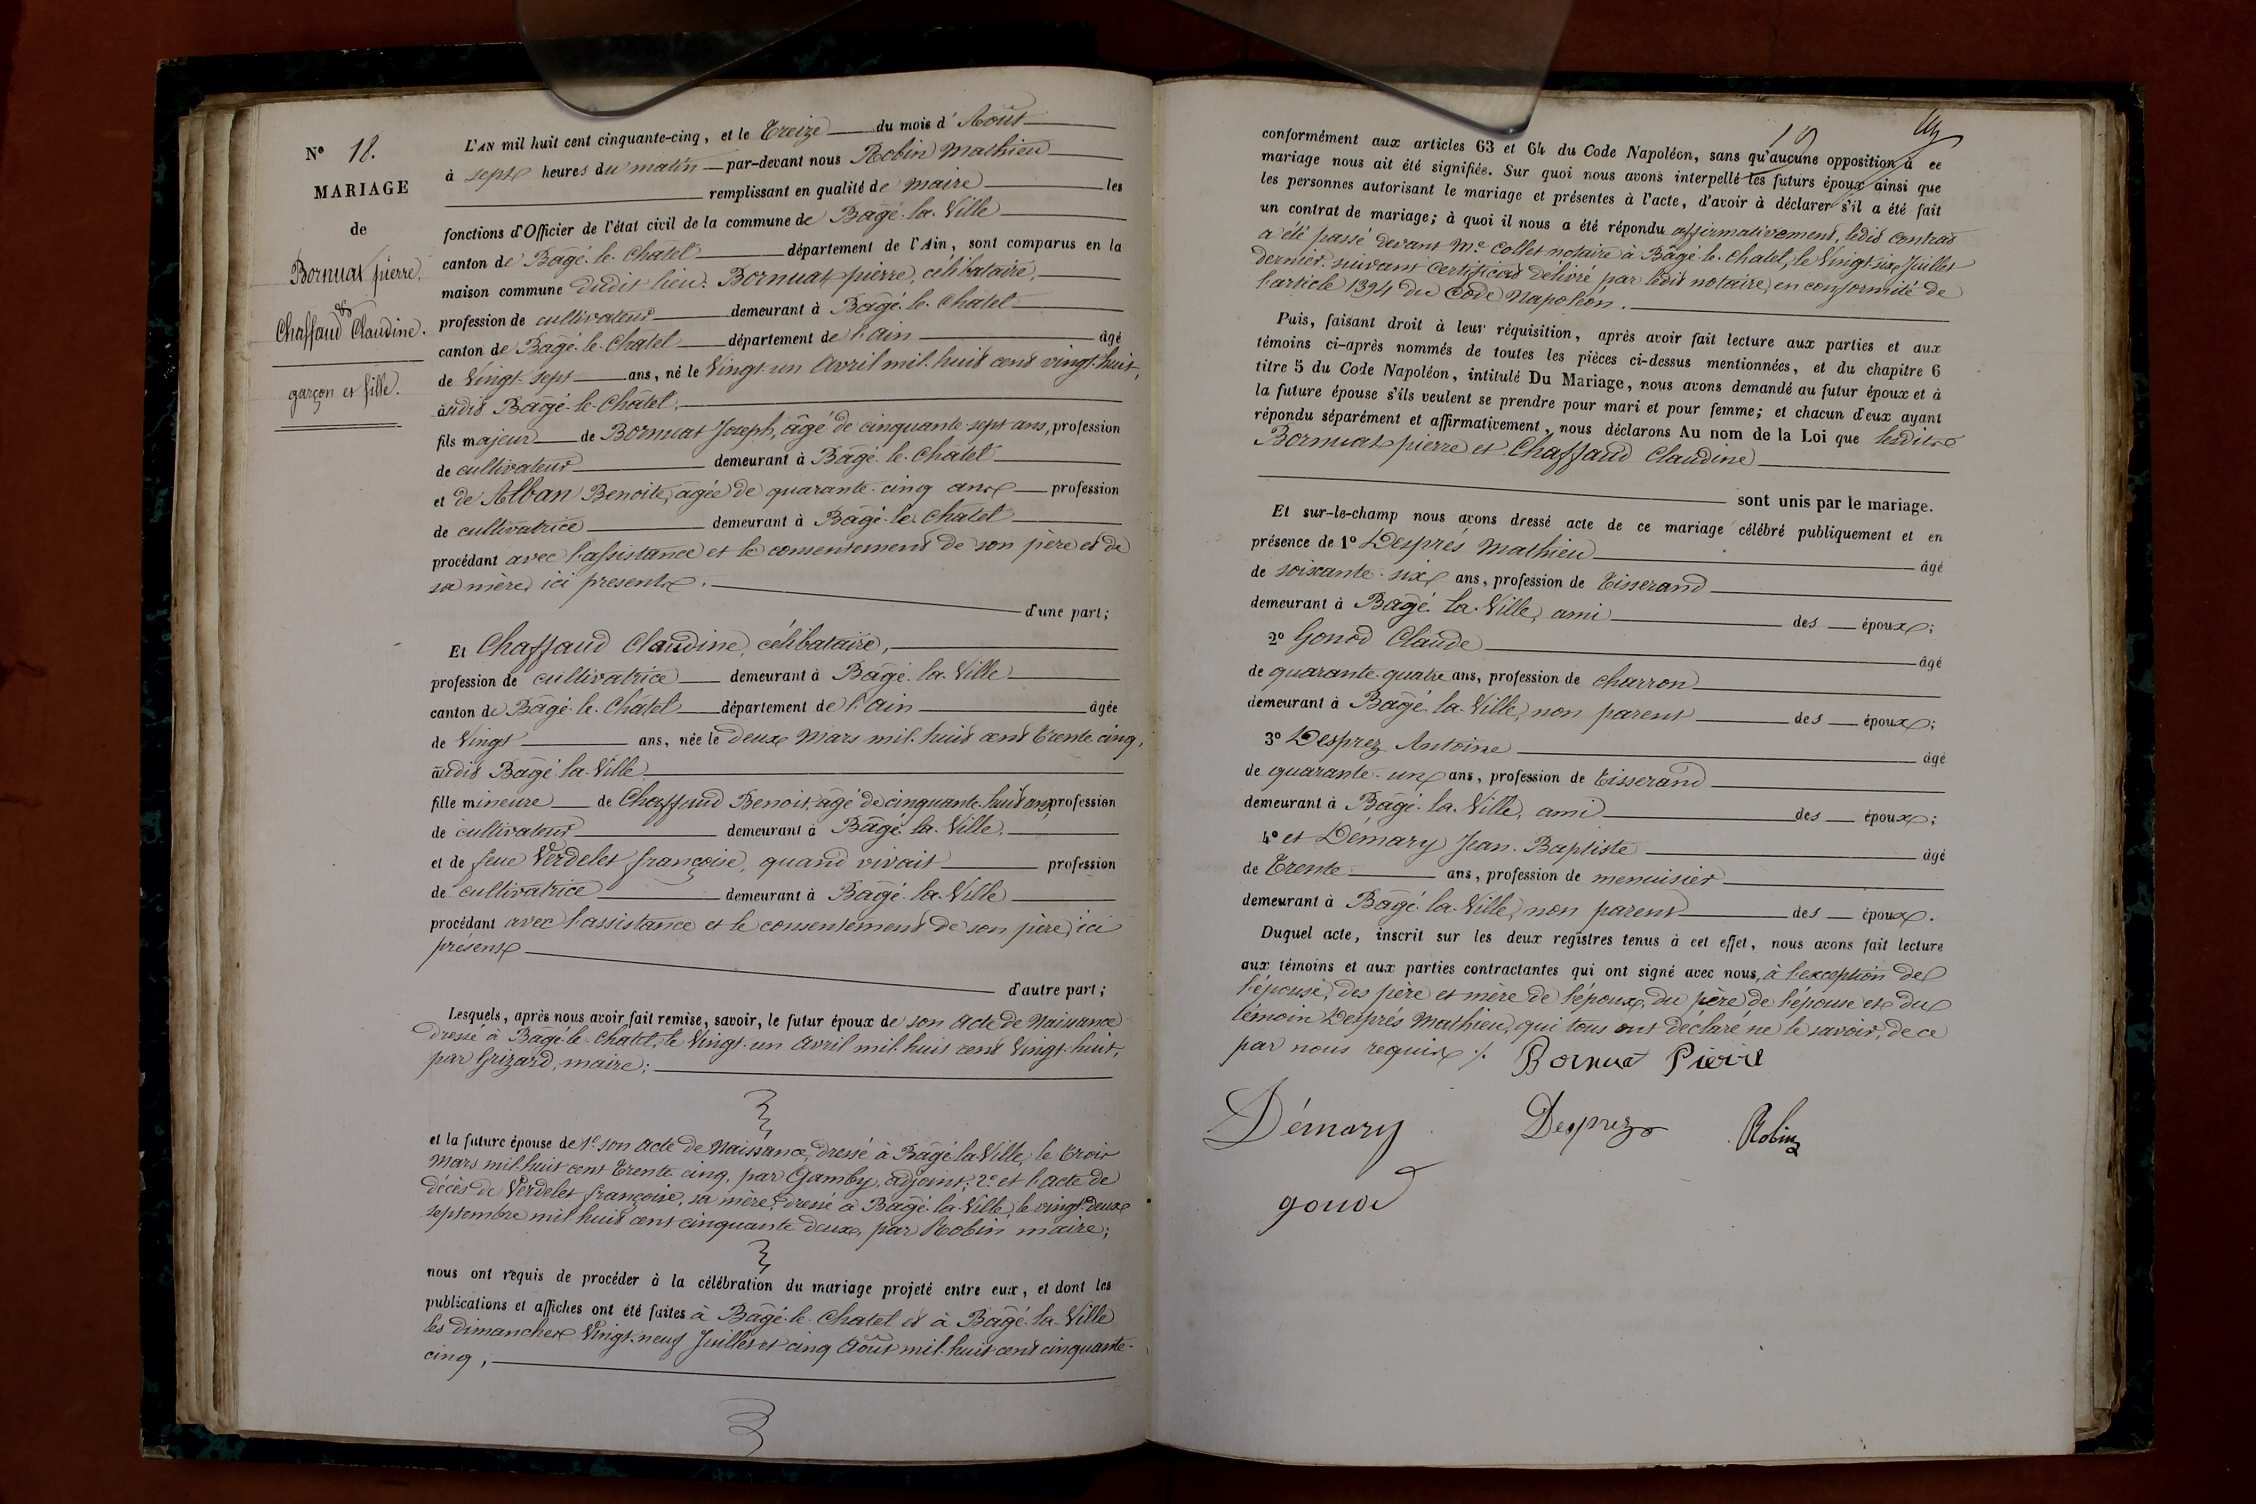 N° 18.
MARIAGE
de
Bornuat pierre,
&
Chaffaud Claudine.
garçon et fille.
L'AN mil huit cent cinquante-cinq, et le Treize du mois d'Août
à sept heures du matin par-devant nous Robin Mathieu
remplissant en qualité de maire les
fonctions d'Officier de l'état civil de la commune de Bâgé-la-Ville
canton de Bâgé-le-Chatel département de l'Ain, sont comparus en la
maison commune dudit lieu: Bornuat pierre, célibataire,
profession de cultivateur demeurant à Bâgé-le-Châtel
canton de Bâgé-le-Châtel département de l'ain âgé
de Vingt-sept ans, né le Vingt-un Avril mil-huit cent vingt-huit,
audit Bâgé-le-Châtel,
fils majeur de Bornuat Joseph, âgé de cinquante-sept ans, profession
de cultivateur demeurant à Bâgé-le-Châtel
et de Alban Benoite, âgée de quarante-cinq ans profession
de cultivatrice demeurant à Bâgé-le-Châtel
procédant avec l'assistance et le consentement de son père et de
sa mère, ici présents.
d'une part;
Et Chaffaud Claudine, célibataire,
profession de cultivatrice demeurant à Bâgé-la-Ville
canton de Bâgé-le-Châtel département de l'ain âgée
de Vingt ans, née le deux Mars mil-huit cent Trente cinq,
audit Bâgé-la-Ville
fille mineure de Chaffaud Benoit, âgé de cinquante-huit ans, profession
de cultivateur demeurant à Bâgé-la-Ville,
et de feue Verdelet françoise, quand vivait profession
de cultivatrice demeurant à Bâgé-la-Ville
procédant avec l'assistance et le consentement de son père, ici
présent
d'autre part;
Lesquels, après nous avoir fait remise, savoir, le futur époux de son Acte de Naissance
dressé à Bâgé-le-Chatel, le Vingt-un Avril mil-huit cent Vingt-huit,
par Grizard, maire;
et la future épouse de 1° son Acte de Naissance, dressé à Bâgé-la-Ville, le trois
Mars mil-huit cent Trente cinq, par Gamby, adjoint; 2° et l'acte de
décès de Verdelet françoise, sa mère, dressé à Bâgé-la-Ville, le vingt-deux
septembre mil huit cent cinquante deux, par Robin maire;
nous ont requis de procéder à la célébration du mariage projeté entre eux, et dont les
publications et affiches ont été faites à Bâgé-le-Chatel et à Bâgé-la-Ville
les dimanches Vingt-neuf Juillet et cinq Août mil-huit cent cinquante-
cinq,
19
conformément aux articles 63 et 64 du Code Napoléon, sans qu'aucune opposition à ce
mariage nous ait été signifiée. Sur quoi nous avons interpellé les futurs époux ainsi que
les personnes autorisant le mariage et présentes à l'acte, d'avoir à déclarer s'il a été fait
un contrat de mariage; à quoi il nous a été répondu affirmativement, ledit contrat
a été passé devant Me Collet notaire à Bâgé-le-Chatel, le Vingt-six Juillet
dernier suivant Certificat délivré par ledit notaire, en conformité de
l'article 1394 du Code Napoléon.
Puis, faisant droit à leur réquisition, après avoir fait lecture aux parties et aux
témoins ci-après nommés de toutes les pièces ci-dessus mentionnées, et du chapitre 6
titre 5 du Code Napoléon, intitulé Du Mariage, nous avons demandé au futur époux et à
la future épouse s'ils veulent se prendre pour mari et pour femme; et chacun d'eux ayant
répondu séparément et affirmativement, nous déclarons Au nom de la Loi que lesdits
Bornuat pierre et Chaffaud Claudine
sont unis par le mariage.
Et sur-le-champ nous avons dressé acte de ce mariage célébré publiquement et en
présence de 1° Després Mathieu âgé
de soixante-six ans, profession de Tisserand
demeurant à Bâgé-la-Ville, ami des époux;
2° Gonod Claude âgé
de quarante-quatre ans, profession de charron
demeurant à Bâgé-la-Ville, non parent des époux;
3° Desprez Antoine âgé
de quarante-un ans, profession de Tisserand
demeurant à Bâgé-la-Ville, ami des époux;
4° et Démary Jean-Baptiste âgé
de Trente ans, profession de menuisier
demeurant à Bâgé-la-Ville, non parent des époux.
Duquel acte, inscrit sur les deux registres tenus à cet effet, nous avons fait lecture
aux témoins et aux parties contractantes qui ont signé avec nous, à l'exception de
l'épouse, des père et mère de l'époux, du père de l'épouse et du
témoin Després Mathieu, qui tous ont déclaré ne le savoir, de ce
par nous requis ./.
Bornuat Pierre
Démary
Desprez
Robin
gonod